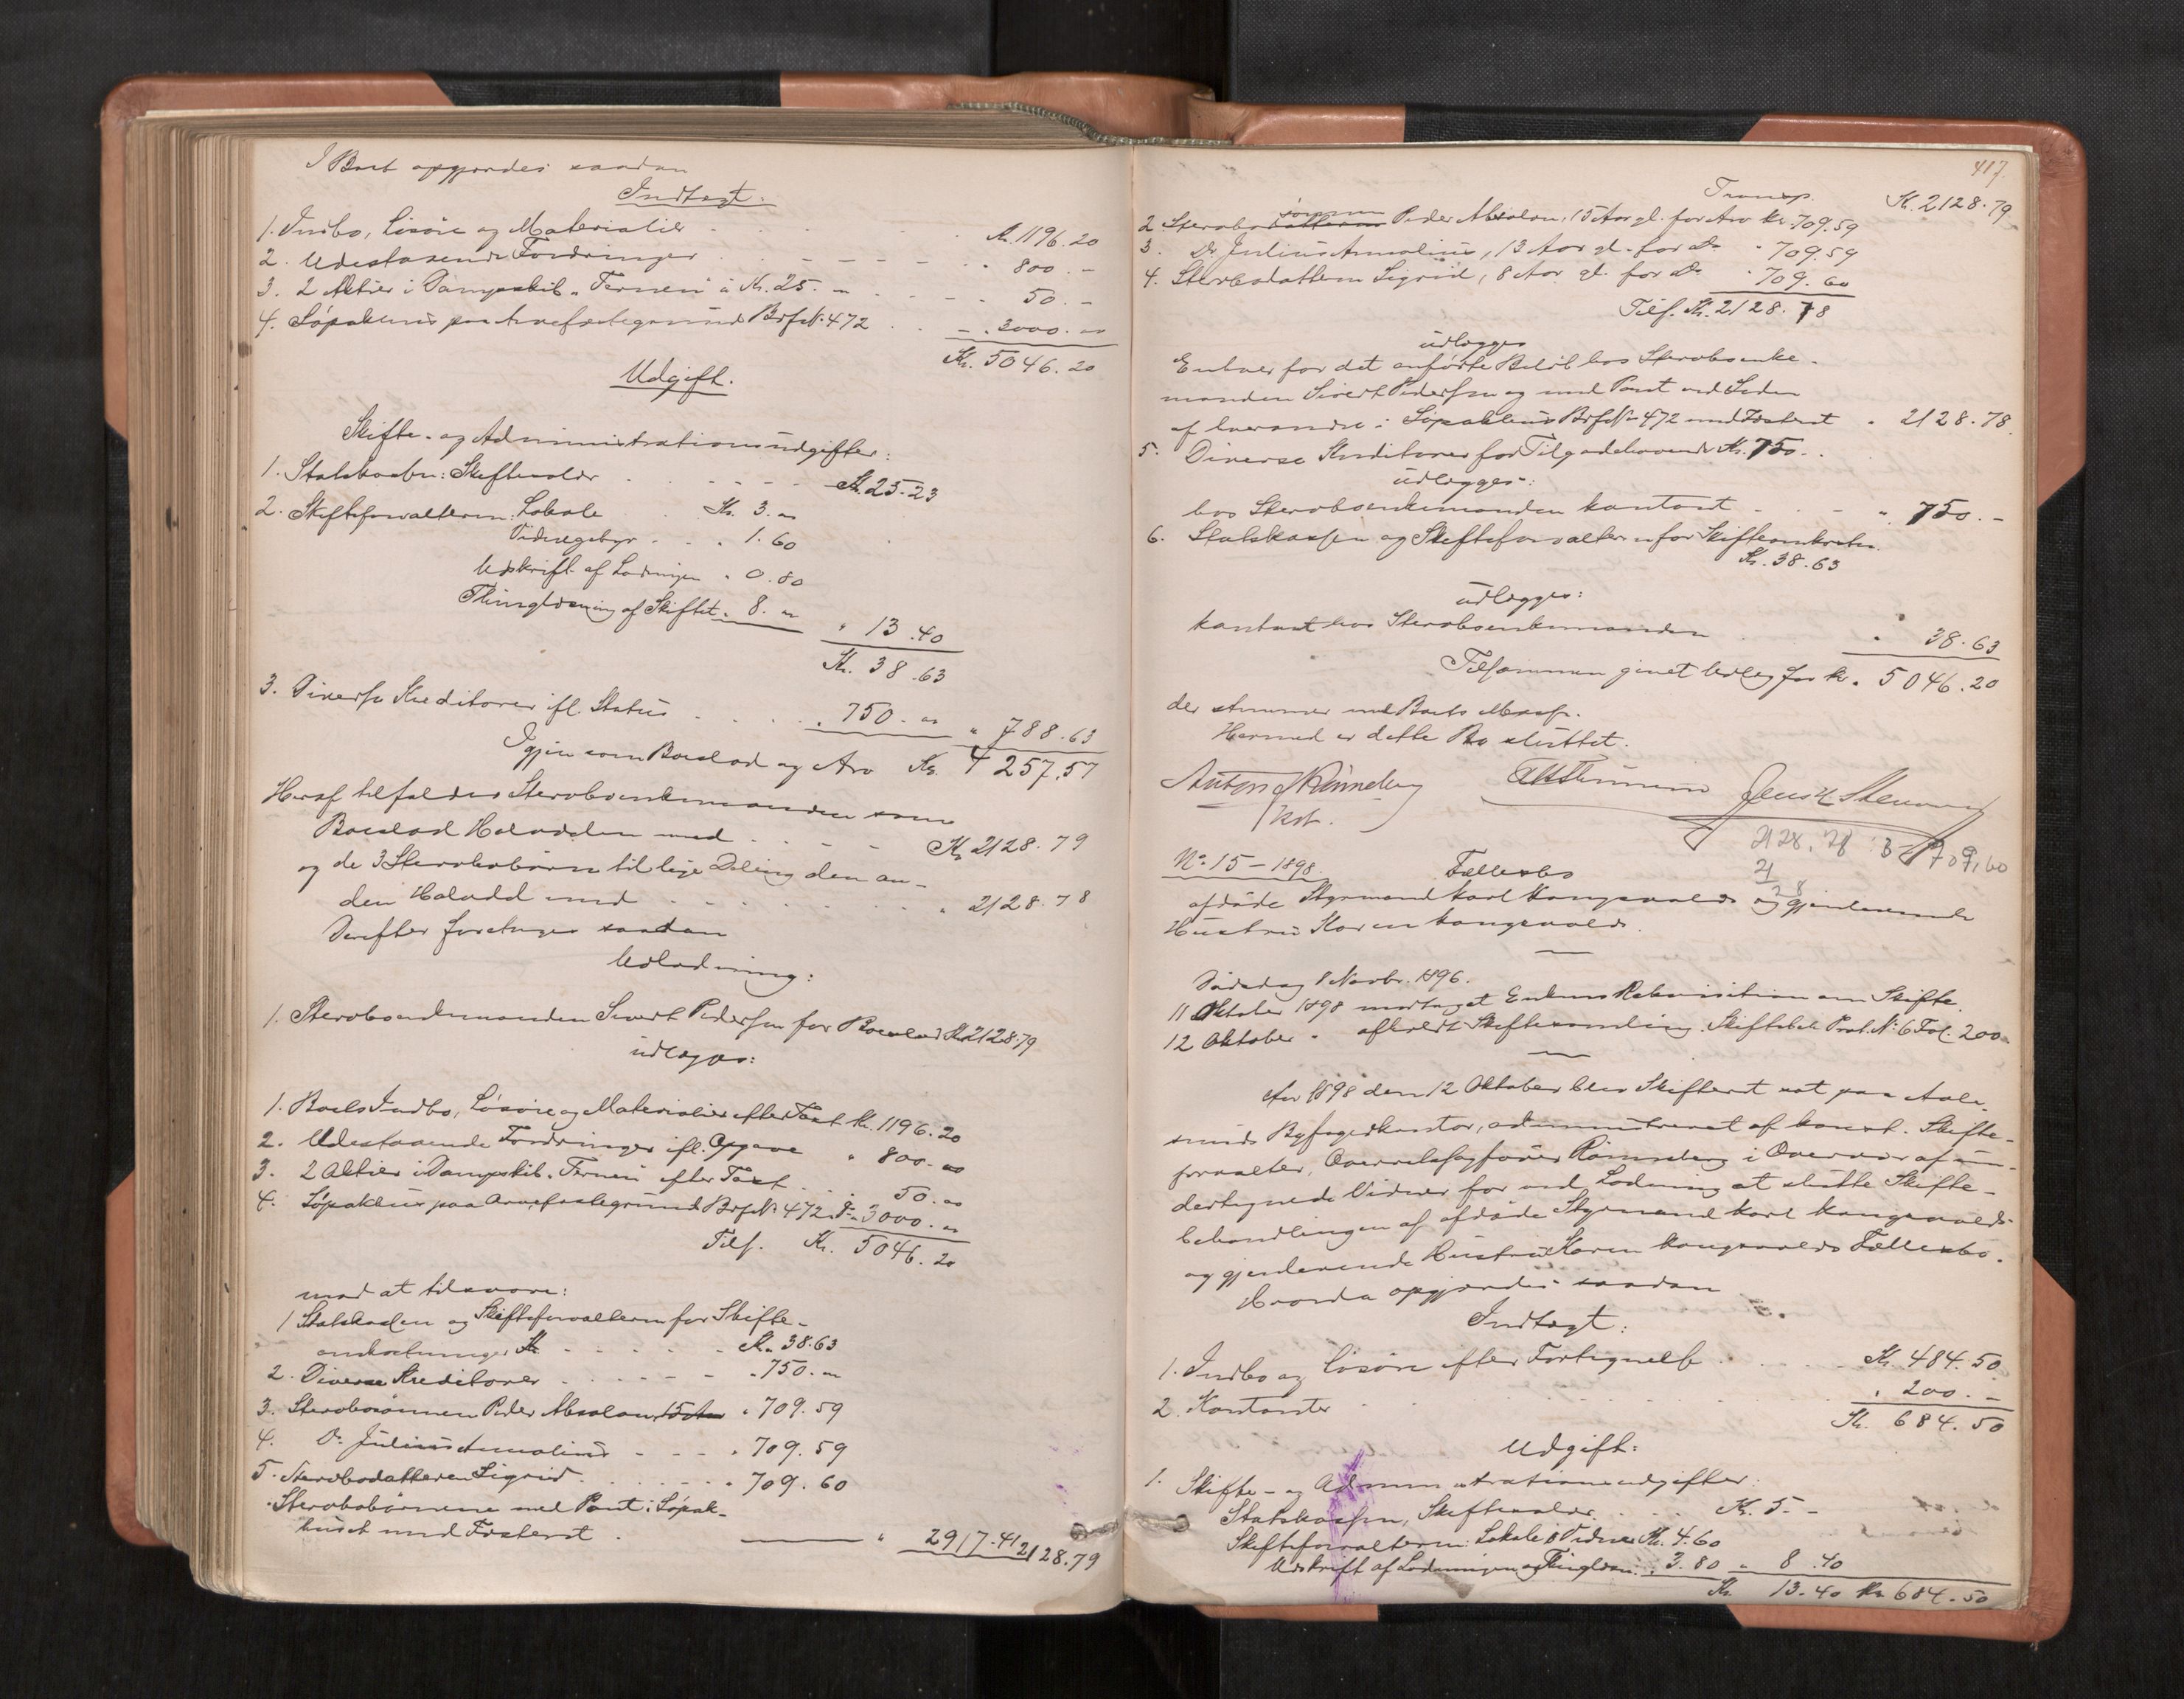 I Boet opgjordes saadan
Indtægt.
1. Indbo, Løsøre og Materialier . . . Kr. 1196.20
2. Udestaaende Fordringer . . . " 800.-
3. 2 Aktier i Dampskib "Fernen" à Kr. 25.- . . . 50.-
4. Søpakhus paa Arvefæstegrund BrfN. 472 . . - 3000.-
Kr. 5046.20
Udgift.
Skifte- og Administrationsudgifter:
1. Statskassen: Skifteafgift . . . Kr. 25.23
2. Skifteforvalteren: Lokale . Kr. 3.-
Vidnegebyr . . " 1.60
Udskrift af Lodningen " 0.80
Thinglæsning af Skiftet " 8.- " 13.40
Kr. 38.63
3. Diverse Kreditorer ifl. Status . . . " 750.- " 788.63
Igjen som Boeslod og Arv Kr. 4257.57
Heraf tilfalder Sterboenkemanden som
Boeslod Halvdelen med . . . Kr. 2128.79
og de 3 Sterbobørn til lige Deling den an-
den Halvdel med . . . " 2128.78
Derefter foretages saadan
Udlodning:
1. Sterboenkemanden Sivert Pedersen for Boeslod Kr. 2128.79
udlægges:
1. Boets Indbo, Løsøre og Materialier efter Taxt Kr. 1196.20
2. Udestaaende Fordringer ifl. Opgave " 800.-
3. 2 Aktier i Dampskib. Fernen efter Taxt . . 50.-
4. Søpakhus paa Arvefæstegrund BrfN. 472 " 3000.-
Tils. Kr. 5046.20
mod at tilsvare:
1 Statskassen og Skifteforvalteren for Skifte-
omkostninger Kr. . . . Kr. 38.63
2. Diverse Kreditorer . . . " 750.-
3. Sterbosønnen Peder Absalon 15 Aar " 709.59
4. Do Julius Annalius - - - " 709.59
5. Sterbodatteren Sigrid . . . " 709.60
Sterbobørnene med Pant i Søpak-
huset med Fæsteret . " 2917.41 2128.79
417.
Transp. Kr. 2128.79
sønnen
2 Sterbodatteren Peder Absalon, 15 Aar gl. for Arv Kr. 709.59
3. Do Julius Annalius, 13 Aar gl. for Do " 709.59
4. Sterbodatteren Sigrid, 8 Aar gl. for Do " 709.60
Tils. Kr. 2128.78
udlægges
Enhver for det anførte Beløb hos Sterboenke-
manden Sivert Pedersen og med Pant ved Siden
af hverandre i Søpakhus BrfN. 472 med Fæsteret " 2128.78.
5. Diverse Kreditorer for Tilgodehavende Kr. 750.-
udlægges:
hos Sterboenkemanden kontant . . . " 750.-
6. Statskassen og Skifteforvalteren for Skifteomkostn.
Kr. 38.63
udlægges:
kontant hos Sterboenkemanden . " 38.63
Tilsammen givet Udlæg for Kr. 5046.20
der stemmer med Boets Masse.
Hermed er dette Bo sluttet.
Anton Rønneberg
kst.
2128.78 : 3 = 709,60
21
28
No 15 - 1898. Fællesbo
afdøde Styrmand Karl Kongsvolds og gjenlevende
Hustru Karen Kongsvolds.
Dødsdag 8 Novbr. 1896.
11 Oktober 1898 modtaget Enkens Rekvisition om Skifte.
12 Oktober " afholdt Skiftesamling. Skiftebeh. Prot. N: 6 Fol. 200.
Aar 1898 den 12 Oktober blev Skifteret sat paa Aale-
sunds Byfogedkontor, administreret af konst. Skifte-
forvalter, Overretssagfører Rønneberg i Overvær af un-
dertegnede Vidner for ved Lodning at slutte Skifte-
behandlingen af afdøde Styrmand Karl Kongsvolds
og gjenlevende Hustru Karen Kongsvolds Fællesbo.
Hvorda opgjordes saadan
Indtægt:
1. Indbo og Løsøre efter Fortegnelse . . . Kr. 484.50
2. Kontanter . . . " 200.-
Kr. 684.50
Udgift:
1. Skifte- og Administrationsudgifter:
Statskassen, Skifteafgift . . . Kr. 5.-
Skifteforvalteren: Lokale & Vidner Kr. 4.60
Udskrift af Lodningen og Thinglæsn. " 3.80 " 8.40
Kr. 13.40 Kr. 684.50